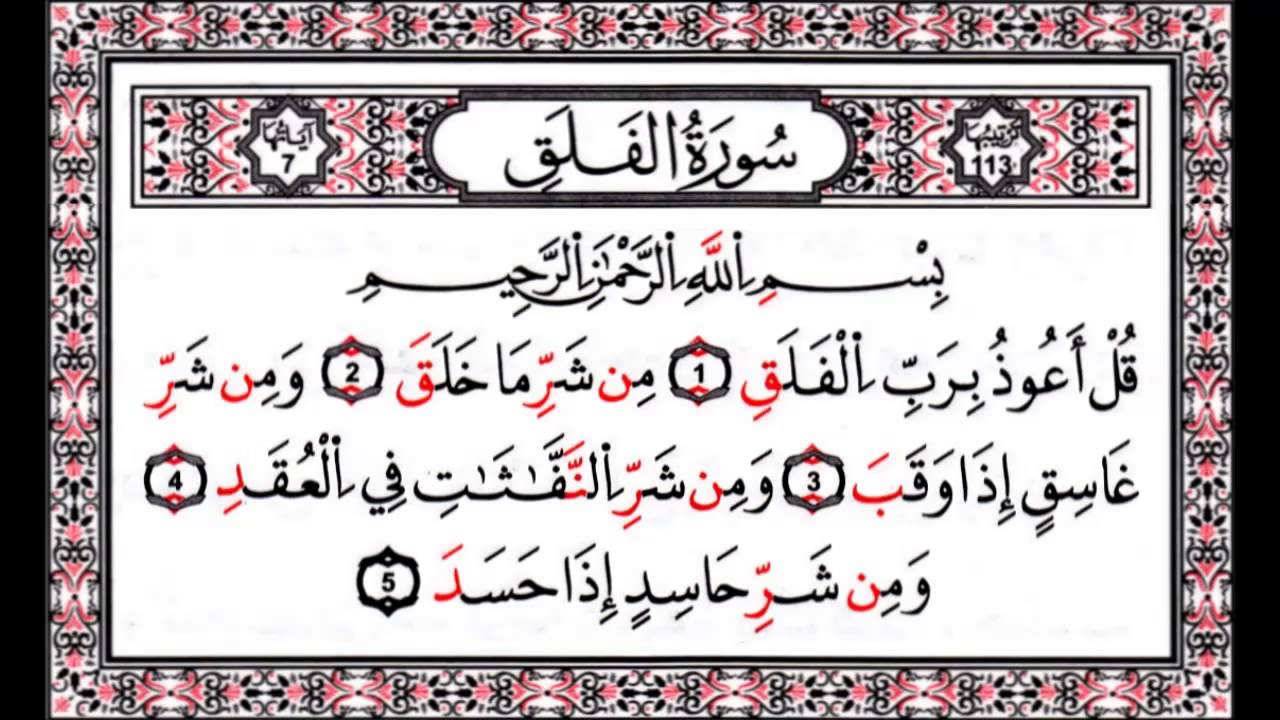 ترتيبها 113 سُورَةُ الْفَلَقِ آياتها 7
بِسْمِ اِ۬للَّهِ اِ۬لرَّحْمَٰنِ اِ۬لرَّحِيمِ
قُلْ أَعُوذُ بِرَبِّ اِ۬لْفَلَقِ 1 مِن شَرِّ مَا خَلَقَ 2 وَمِن شَرِّ
غَاسِقٍ إِذَا وَقَبَ 3 وَمِن شَرِّ اِ۬لنَّفَّٰثَٰتِ فِي اِ۬لْعُقَدِ 4
وَمِن شَرِّ حَاسِدٍ إِذَا حَسَدَ 5